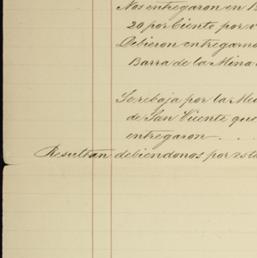 Nos entregaron en B
20 por Ciento por v
Debieron entregarno
Barra de la Mina
Se rebaja por la Me
de San Vicente que
entregaron . . .
Resultan debiendonos por esta